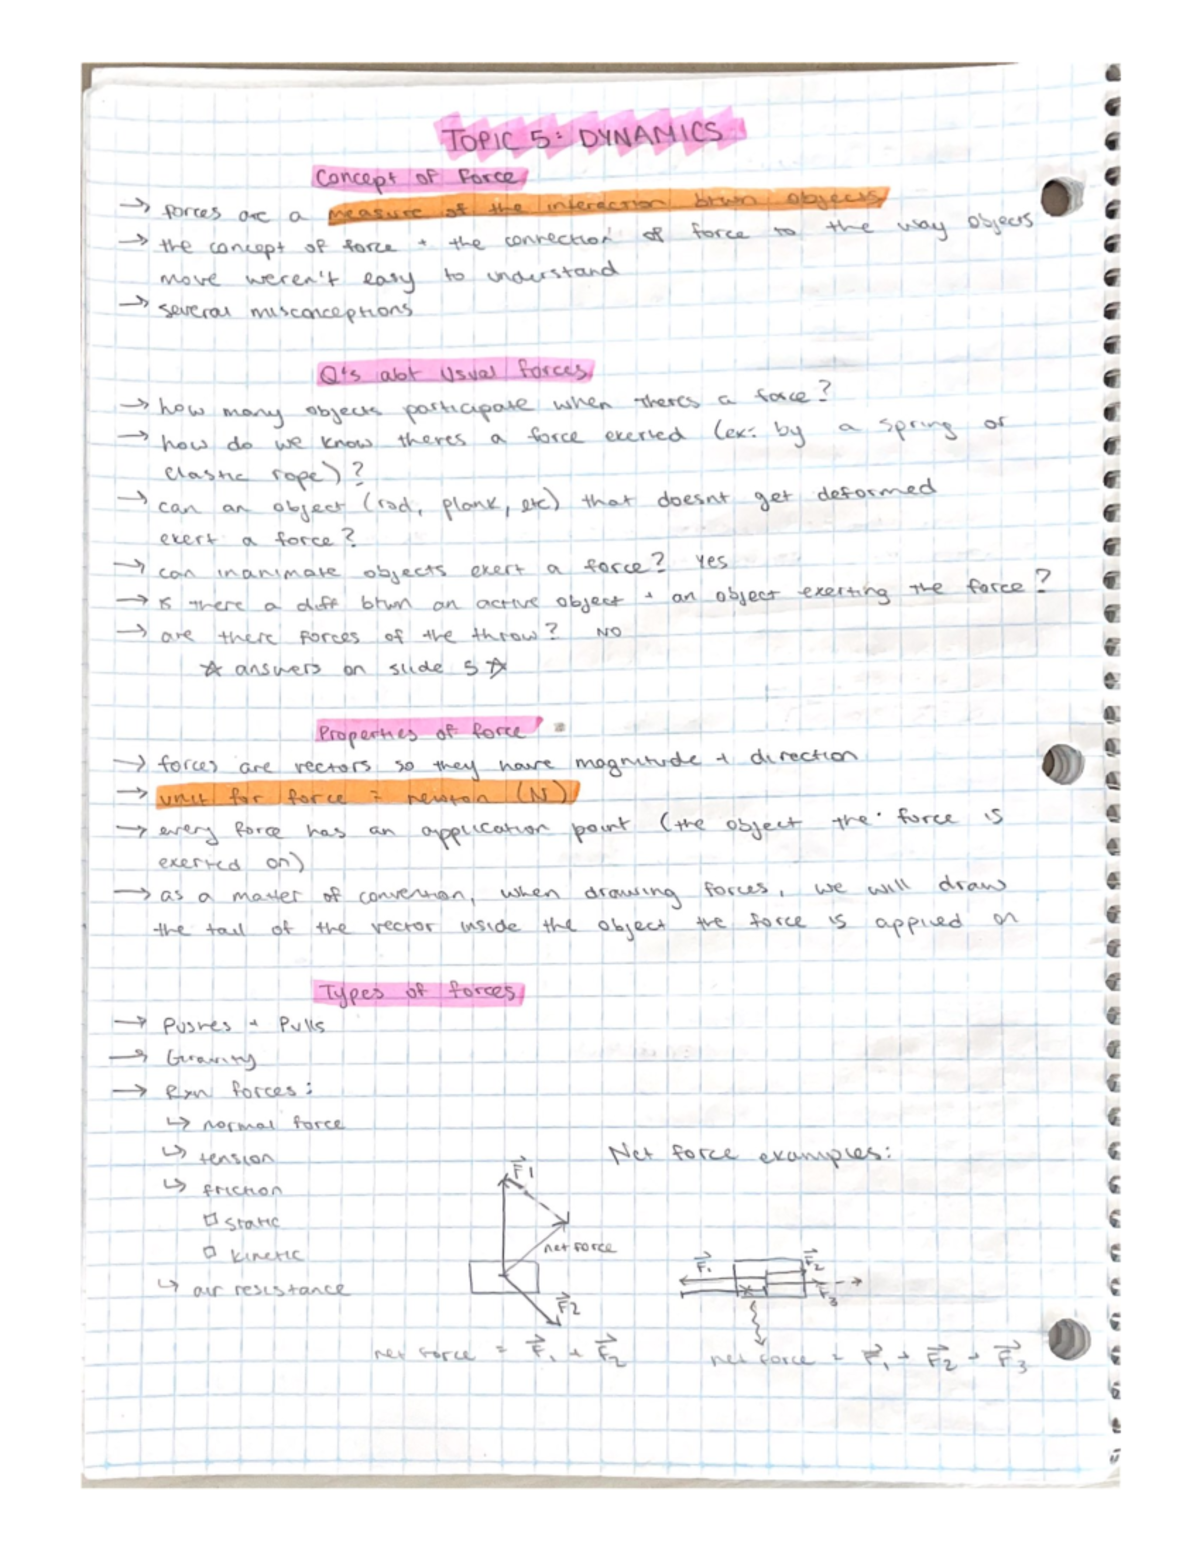 TOPIC 5: DYNAMICS
Concept of Force
→ forces are a measure of the interaction btwn objects
→ the concept of force + the connection of force to the way objects
move weren't easy to understand
→ several misconceptions
Q's abt Usual forces
→ how many objects participate when theres a force?
→ how do we know theres a force exerted (ex: by a spring or
elastic rope)?
→ can an object (rod, plank, etc) that doesnt get deformed
exert a force?
→ can inanimate objects exert a force? Yes
→ is there a diff btwn an active object + an object exerting the force?
→ are there forces of the throw? NO
☆ answers on slide 5 ☆
Properties of force
→ forces are vectors so they have magnitude + direction
→ unit for force = newton (N)
→ every force has an application point (the object the force is
exerted on)
→ as a matter of convention, when drawing forces, we will draw
the tail of the vector inside the object the force is applied on
Types of forces
→ Pushes + Pulls
→ Gravity
→ Rxn forces:
↳ normal force
↳ tension
↳ friction
□ static
□ kinetic
↳ air resistance
F⃗1
net force
F⃗2
net force = F⃗1 + F⃗2
Net force examples:
F⃗1
F⃗2
F⃗3
net force = F⃗1 + F⃗2 + F⃗3